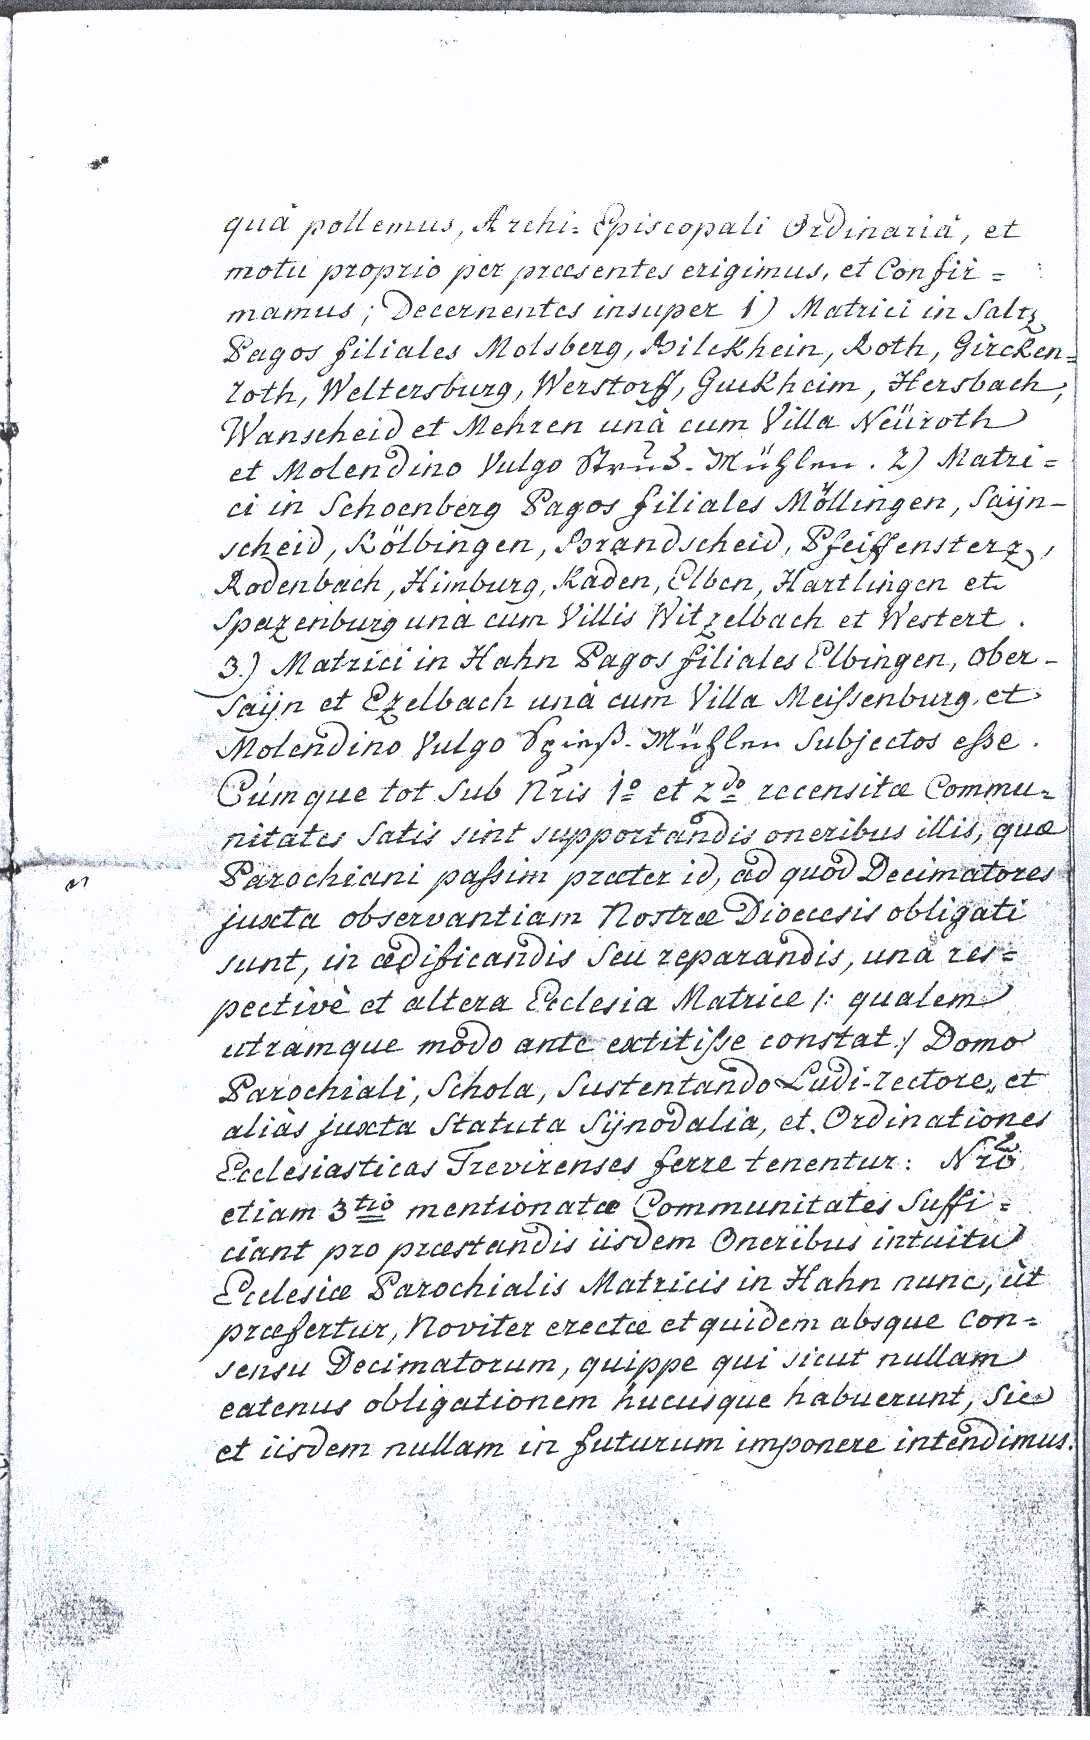 quâ pollemus, Archi= Episcopali Ordinariâ, et
motu proprio per præsentes erigimus, et Confir=
mamus; Decernentes insuper 1) Matrici in Saltz
Pagos filiales Molsberg, Bilckhein, Roth, Gircken=
roth, Weltersburg, Werstorff, Guckheim, Hersbach,
Wanscheid et Mehren unà cum Villa Neüroth
et Molendino Vulgo Mühlen. 2) Matri=
ci in Schoenberg Pagos filiales Möllingen, Saÿn-
scheid, Kölbingen, Brandscheid, Pfeiffensterz,
Rodenbach, Himburg, Kaden, Elben, Hartlingen et
Spazenburg unà cum Villis Witzelbach et Westert.
3.) Matrici in Hahn Pagos filiales Elbingen, Ober-
Saÿn et Ezelbach unà cum Villa Meissenburg, et
Molendino Vulgo Spieß-Mühlen Subjectos esse.
Cúmque tot Sub Nris 1º et 2do recensitæ Commu=
nitates Satis sint supportandis oneribus illis, quæ
Parochiani passim præter id, ad quod Decimatores
juxta observantiam Nostræ Dioecesis obligati
sunt, in ædificandis Seu reparandis, una res=
pectivè et altera Ecclesia Matrice /: qualem
utramque modo ante extitisse constat :/ Domo
Parochiali, Schola, Sustentando Ludi-rectore, et
aliàs juxta Statuta Sÿnodalia, et Ordinationes
Ecclesiasticas Trevirenses ferre tenentur: Nro
etiam 3tio mentionatæ Communitates Suffi=
ciant pro præstandis iisdem Oneribus intuitu
Ecclesiæ Parochialis Matricis in Hahn nunc, ùt
præfertur, Noviter erectæ et quidem absque Con=
sensu Decimatorum, quippe qui sicut nullam
eatenus obligationem hucusque habuerunt, Sic
et iisdem nullam in futurum imponere intendimus.